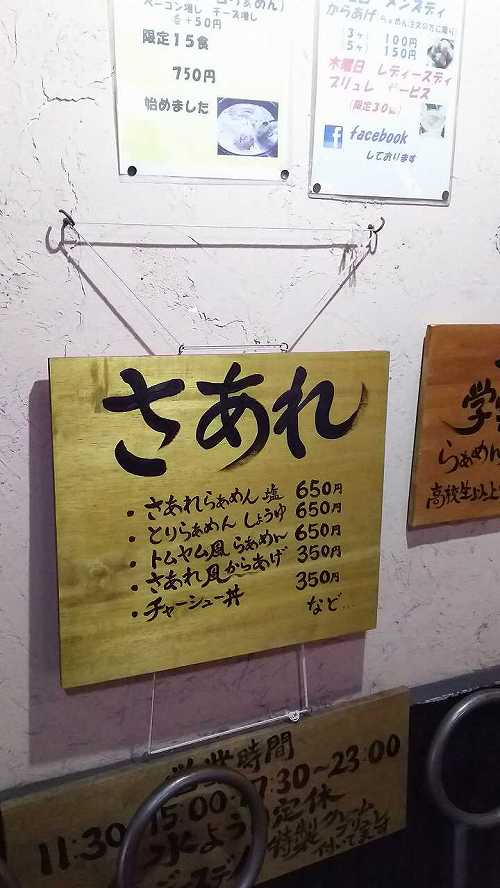 ベーコン増し チーズ増し
各+50円
限定15食
750円
始めました
からあげ
3ヶ 100円
5ヶ 150円
木曜日 レディースディ
ブリュレ サービス
facebook
しております
さあれ
・さあれらぁめん 塩 650円
・とりらぁめん しょうゆ 650円
・トムヤム風らぁめん 650円
・さあれ風からあげ 350円
・チャーシュー丼 350円
など…
らぁめん
高校生以上
営業時間
11:30 15:00 17:30~23:00
水よう 定休